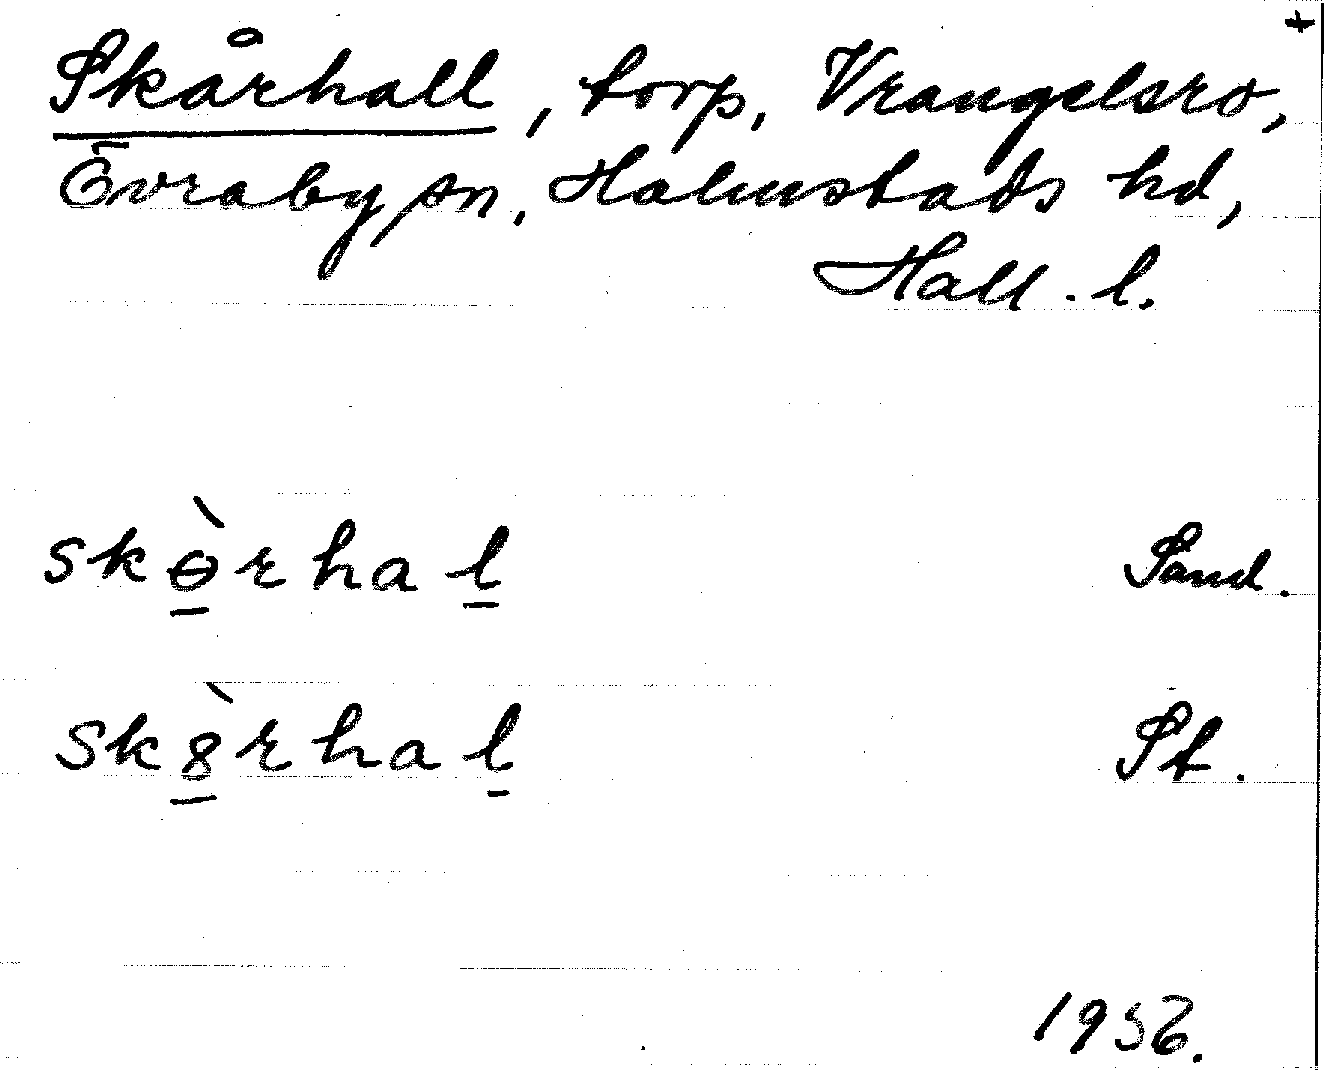 +
Skårhall, torp, Vrangelsro,
Övraby sn, Halmstads hd,
Hall. l.
skɵ̀rhal Sand.
sk8̀rhal St.
1956.